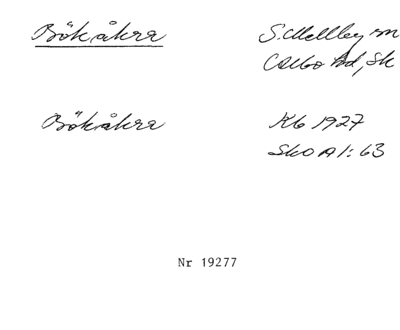 Bökåkra
S. Mellby sn
Albo hd, Sk
Bökåkra
Kb 1927
Sko A 1: 63
Nr 19277